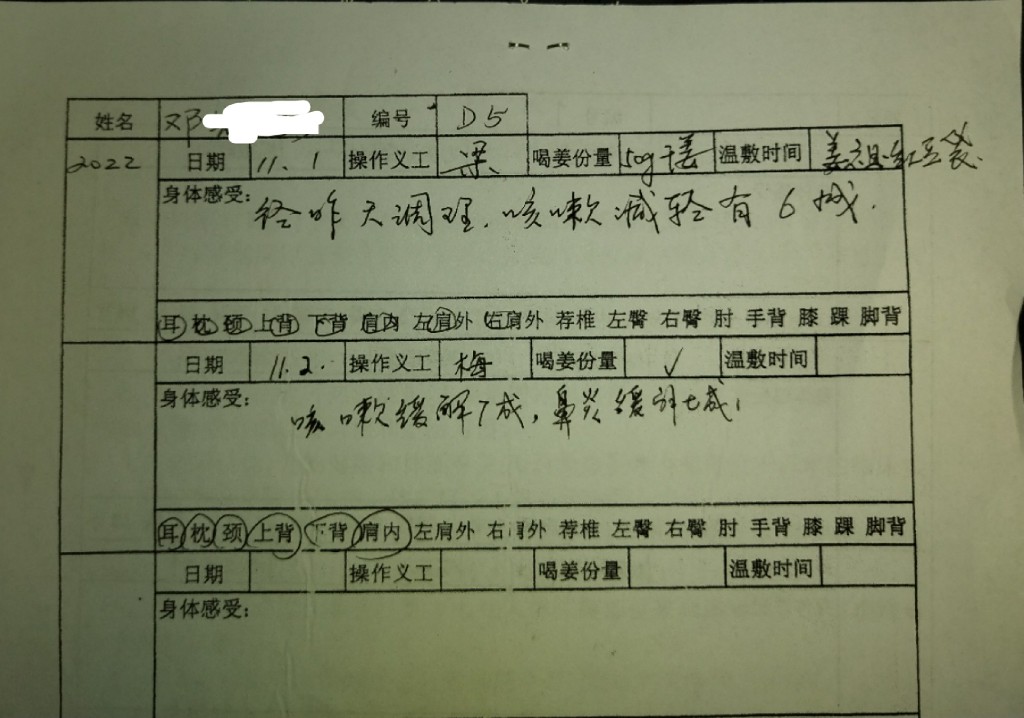 姓名 邓 编号 D5
2022 日期 11.1 操作义工 梁 喝姜份量 50g干姜 温敷时间 姜 红豆袋
身体感受:
经昨天调理,咳嗽减轻有6成.
耳 枕 颈 上背 下背 肩内 左肩外 右肩外 荐椎 左臀 右臀 肘 手背 膝 踝 脚背
日期 11.2. 操作义工 梅 喝姜份量 √ 温敷时间
身体感受:
咳嗽缓解7成,鼻炎缓解七成,
耳 枕 颈 上背 下背 肩内 左肩外 右肩外 荐椎 左臀 右臀 肘 手背 膝 踝 脚背
日期 操作义工 喝姜份量 温敷时间
身体感受: